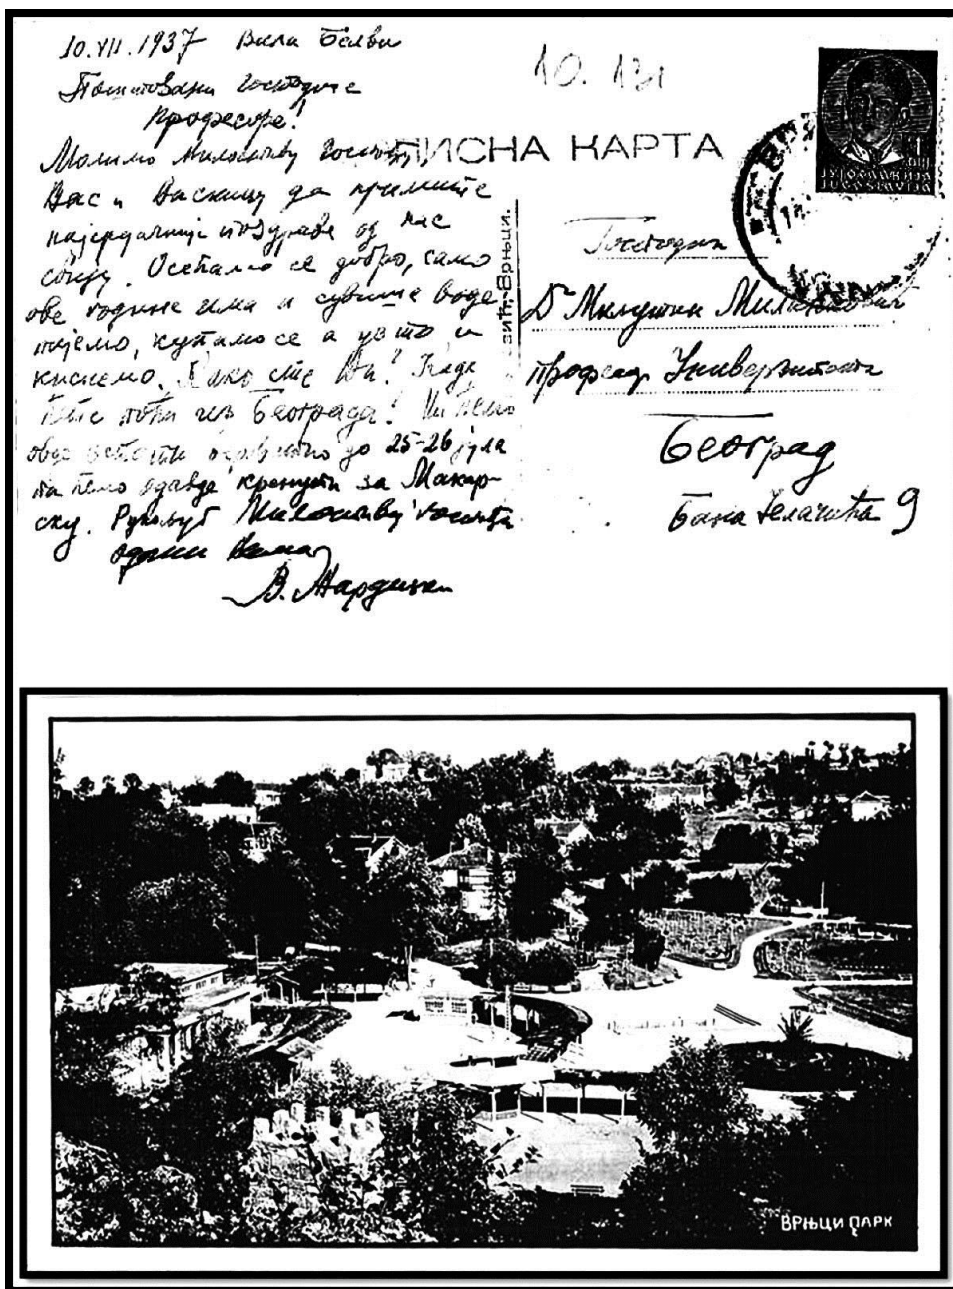 10.VII.1937 Вила Белви
Поштовани Господине
Професоре!
Молимо Милостиву Госпођу,
Вас и Васкицу да примите
најсрдачније поздраве од нас
свију. Осећамо се добро, само
ове године има и сувише воде
пијемо, купамо се а уз то и
киснемо. Како сте Ви? Када
ћете поћи из Београда? Ми ћемо
овде остати до 25-26 јула
па ћемо одавде кренути за Макар-
ску. Рукољуб Милостивој Госпођи
одани Вама
В. Жардецки
10. 131
ПИСНА КАРТА
ЈУГОСЛАВИЈА
JUGOSLAVIJA
Врњци.
Господин
Dr Милутин Миланковић
професор Универзитета
Београд
Бана Јелачића 9
ВРЊЦИ ПАРК